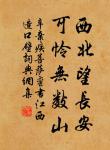 西北望長安
可憐無數山
辛棄疾菩薩蠻書江西
造口壁詞典網集